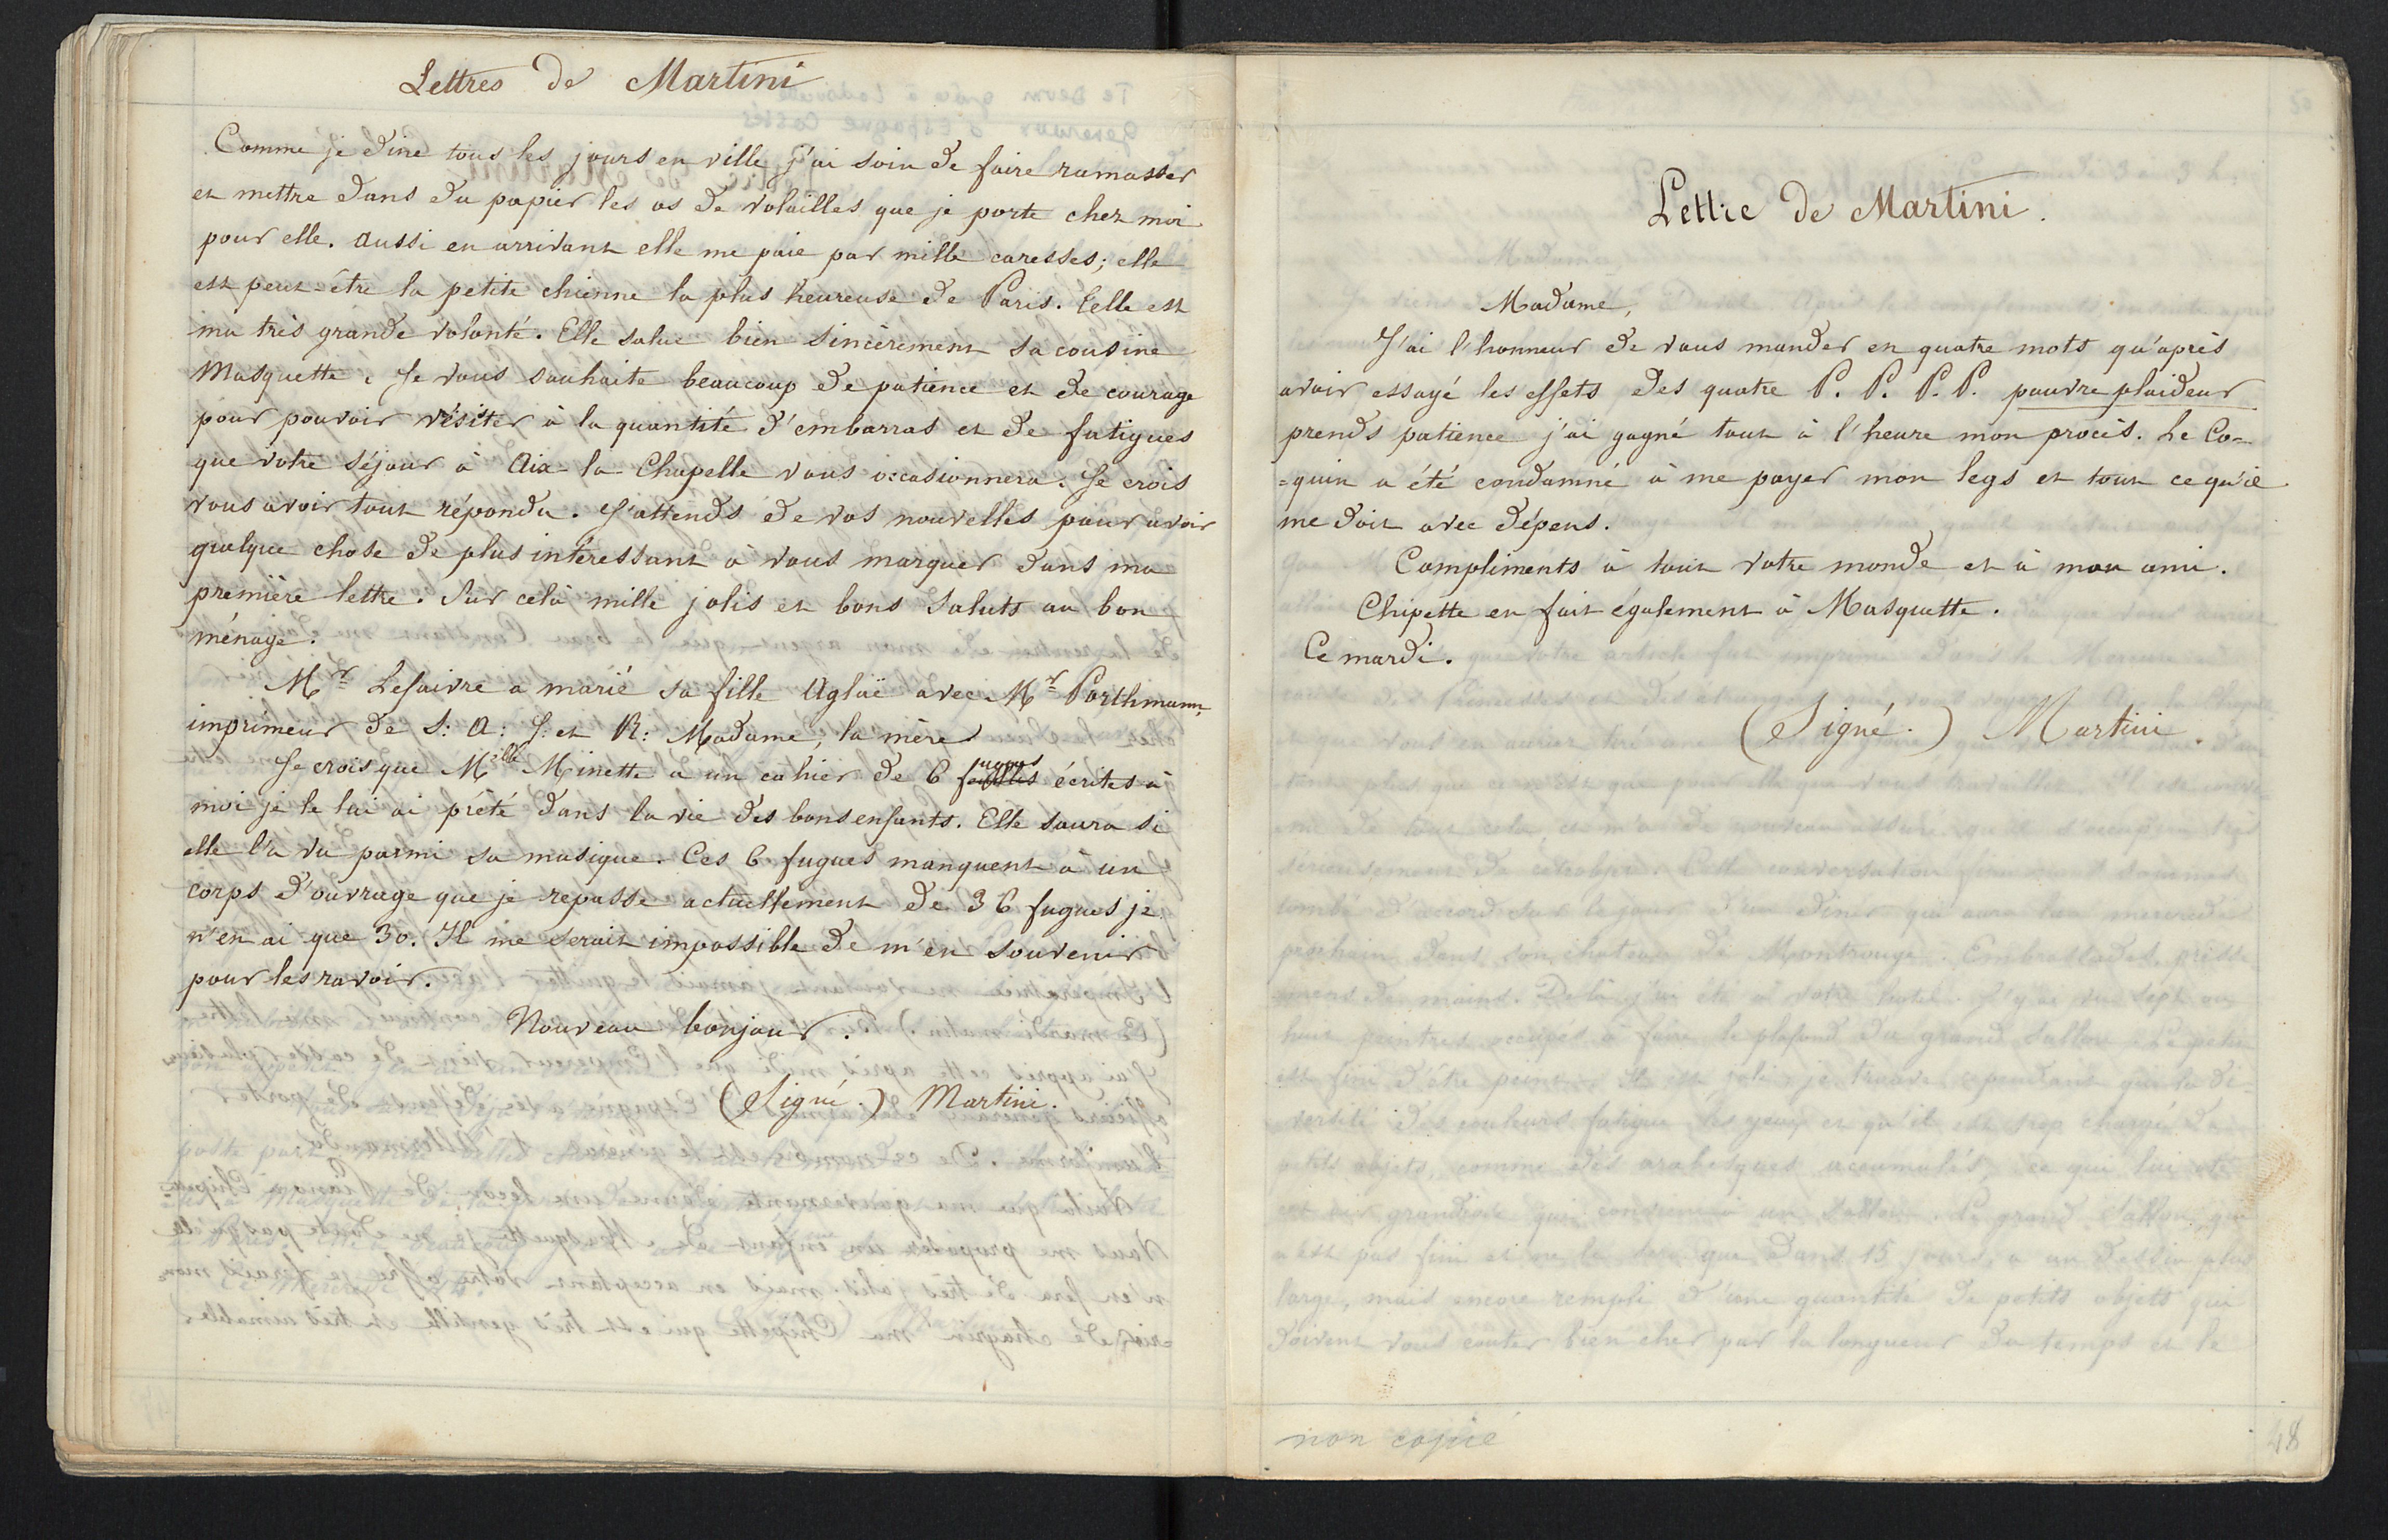 Lettres de Martini
Comme je dine tous les jours en ville j'ai soin de faire ramasser
et mettre dans du papier les os de volailles que je porte chez moi
pour elle. Aussi en arrivant elle me paie par mille caresses; elle
est peut-être la petite chienne la plus heureuse de Paris. Telle est
ma très grande volonté. Elle salue bien sincèrement sa cousine
Masquette. Je vous souhaite beaucoup de patience et de courage
pour pouvoir résister à la quantité d'embarras et de fatigues
que votre séjour à Aix-la-Chapelle vous occasionnera. Je crois
vous avoir tout répondu. J'attends de vos nouvelles pour avoir
quelque chose de plus intéressant à vous marquer dans ma
première lettre. Sur celà mille jolis et bons saluts au bon
ménage.
Mr Lefaivre a marié sa fille Aglaé avec Mr Porthmann,
imprimeur de S: A: I: et R: Madame, la mère
Je crois que Melle Minette a un cahier de 6 fugues feuilles écrites à
moi je le lui ai prété dans la vie des bons enfants. Elle saura si
elle l'a vu parmi sa musique. Ces 6 fugues manquent à un
corps d'ouvrage que je repasse actuellement de 36 fugues je
n'en ai que 30. Il me serait impossible de m'en souvenir
pour les ravoir.
Nouveau bonjour.
(Signé.) Martini.
Lettre de Martini.
Madame,
J'ai l'honneur de vous mander en quatre mots qu'après
avoir essayé les effets des quatre P. P. P. P. pauvre plaideur
prends patience j'ai gagné tout à l'heure mon procès. Le Co-
=quin a été condamné à me payer mon legs et tout ce qu'il
me doit avec dépens.
Compliments à tout votre monde et à mon ami.
Chipette en fait également à Masquette.
Ce mardi.
(Signé.) Martini.
non copié
48